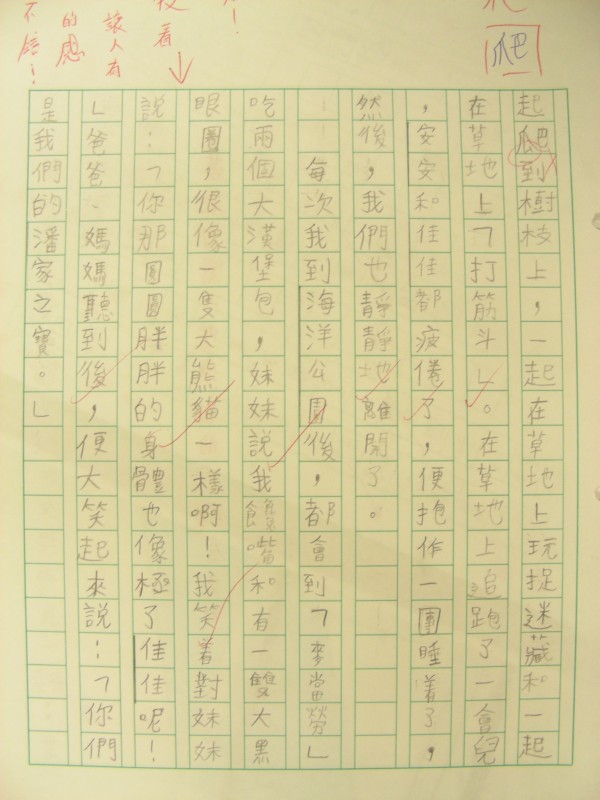 爬
起爬到樹枝上，一起在草地上玩捉迷藏和一起
在草地上「打筋斗」。在草地上追跑了一會兒
，安安和佳佳都疲倦了，便抱作一團睡着了，
然後，我們也靜靜地離開了。
每次我到海洋公園後，都會到「麥當勞」
吃兩個大漢堡包，妹妹說我饞嘴和有一雙大黑
眼圈，很像一隻大熊貓一樣啊！我笑着對妹妹
說：「你那圓圓胖胖的身體也像極了佳佳呢！
」爸爸、媽媽聽到後，便大笑起來說：「你們
是我們的潘家之寶。」
看
讓人有
的感
不